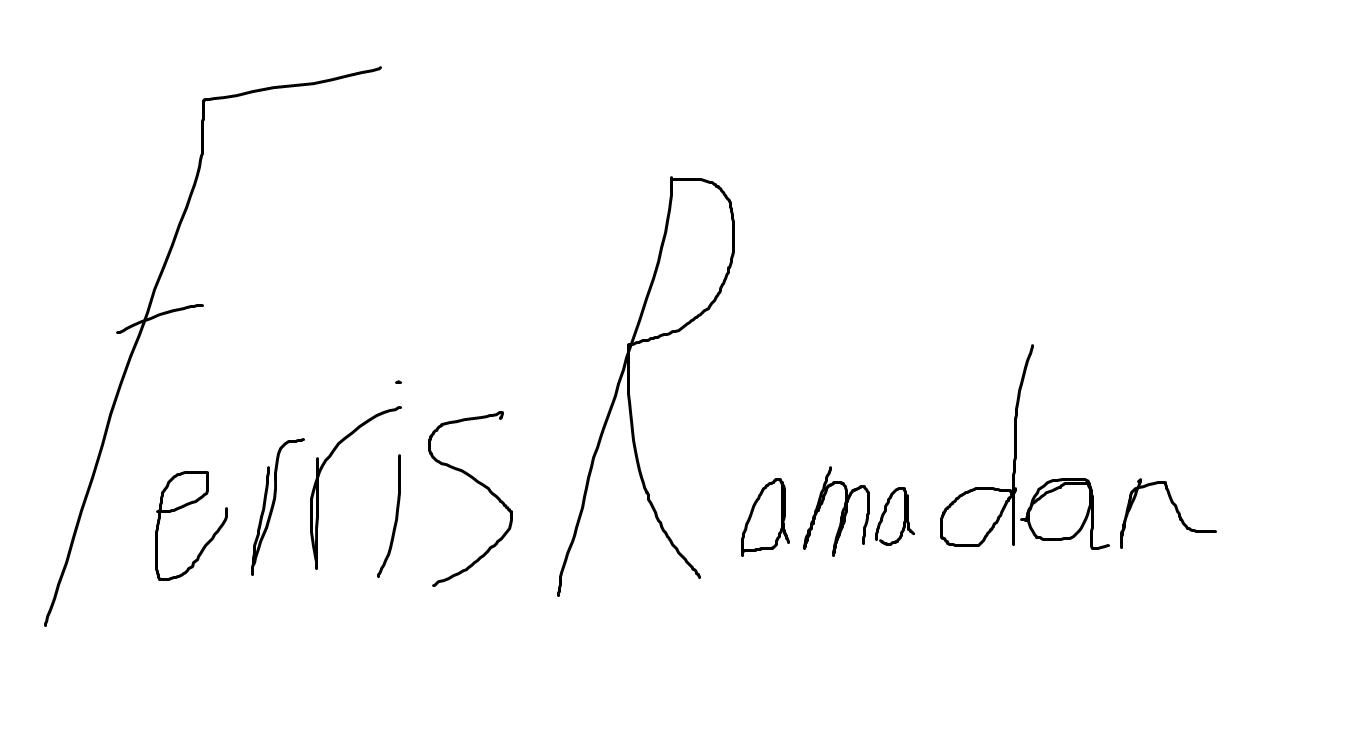 Ferris Ramadan